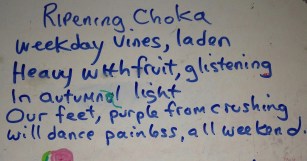 Ripening Choka
weekday vines, laden
Heavy with fruit, glistening
In autumnal light
Our feet, purple from crushing
will dance painless, all weekend.